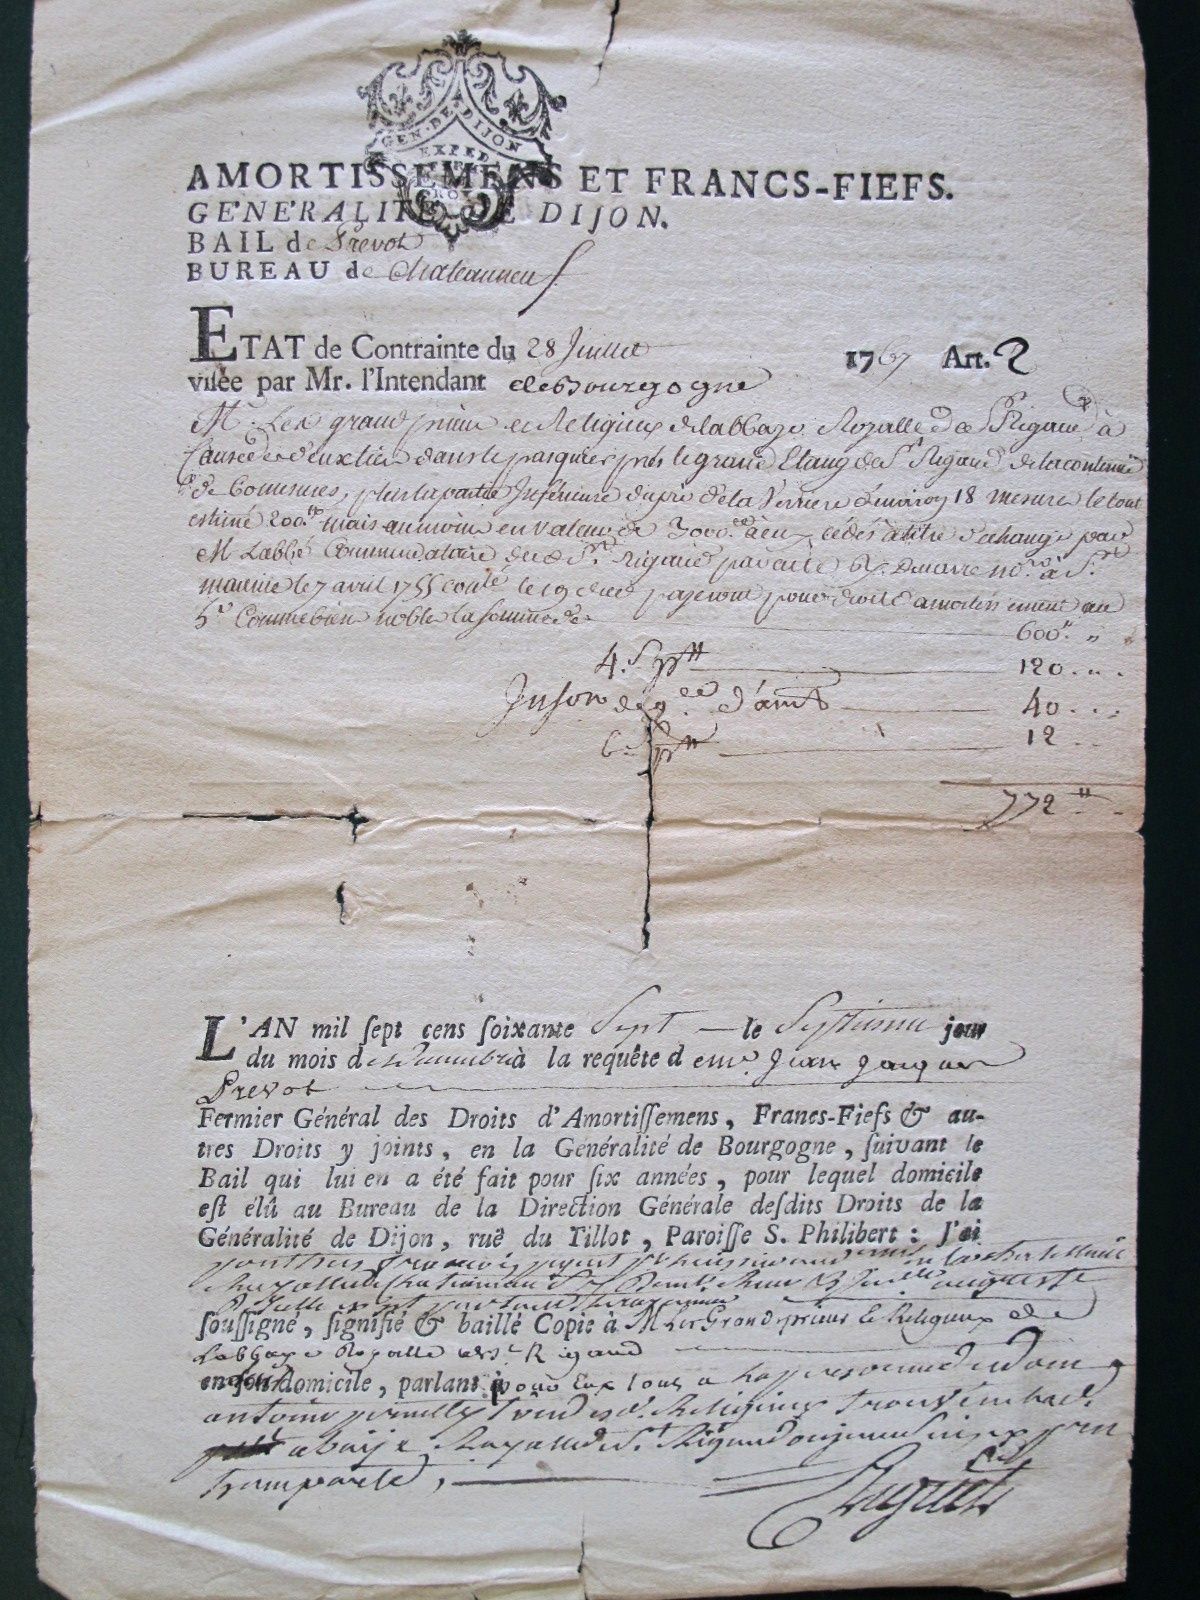 GEN. DE DIJON
EXPED.
AMORTISSEMENS ET FRANCS-FIEFS.
GE'NE'RALITE' DE DIJON.
BAIL de Prevot
BUREAU de Chateauneuf
ETAT de Contrainte du 28 Juillet 1767 Art. 2
visée par Mr. l'Intendant de Bourgogne
Mrs Les grand prieur et Religieux de labbaye Royalle de St Rigaud à
Cause de deux dans le pasquier près le grand Etang de St Rigaud de la contenue
de Coupures, plus la partie Inférieure du pré de la Verriere d'environ 18 mesures le tout
estimé 200 mais au moins en valeur de 3000 à eux cédés à titre d'échange par
M Labbé Commendataire dud St Rigaud par acte reçu no.re à St
maurice le 7 avril 1755 conlé le 19 dud payeront pour droit d'amortissement au
5e Comme bien noble la somme de 600 "
4 s. pr tt 120 "
40 "
6 pr tt 12 "
772 tt
L'AN mil sept cens soixante Sept le Septieme jour
du mois de decembre à la requête d e me. Jean Jacques
Prevot
Fermier Général des Droits d'Amortissemens, Francs-Fiefs & au-
tres Droits y joints, en la Généralité de Bourgogne, suivant le
Bail qui lui en a été fait pour six années, pour lequel domicile
est élû au Bureau de la Direction Générale desdits Droits de la
Généralité de Dijon, ruë du Tillot, Paroisse S. Philibert : J'ai
huissier en la chatellenie
Royalle de Chateauneuf
soussigné, signifié & baillé Copie à M Les Grand prieur & Religieux de
Labbaye Royalle de St Rigaud
en son domicile, parlant pour Eux tous a la personne de dom
antoine Religieux trouvé en lad.
abaije Royalle de St Rigaud